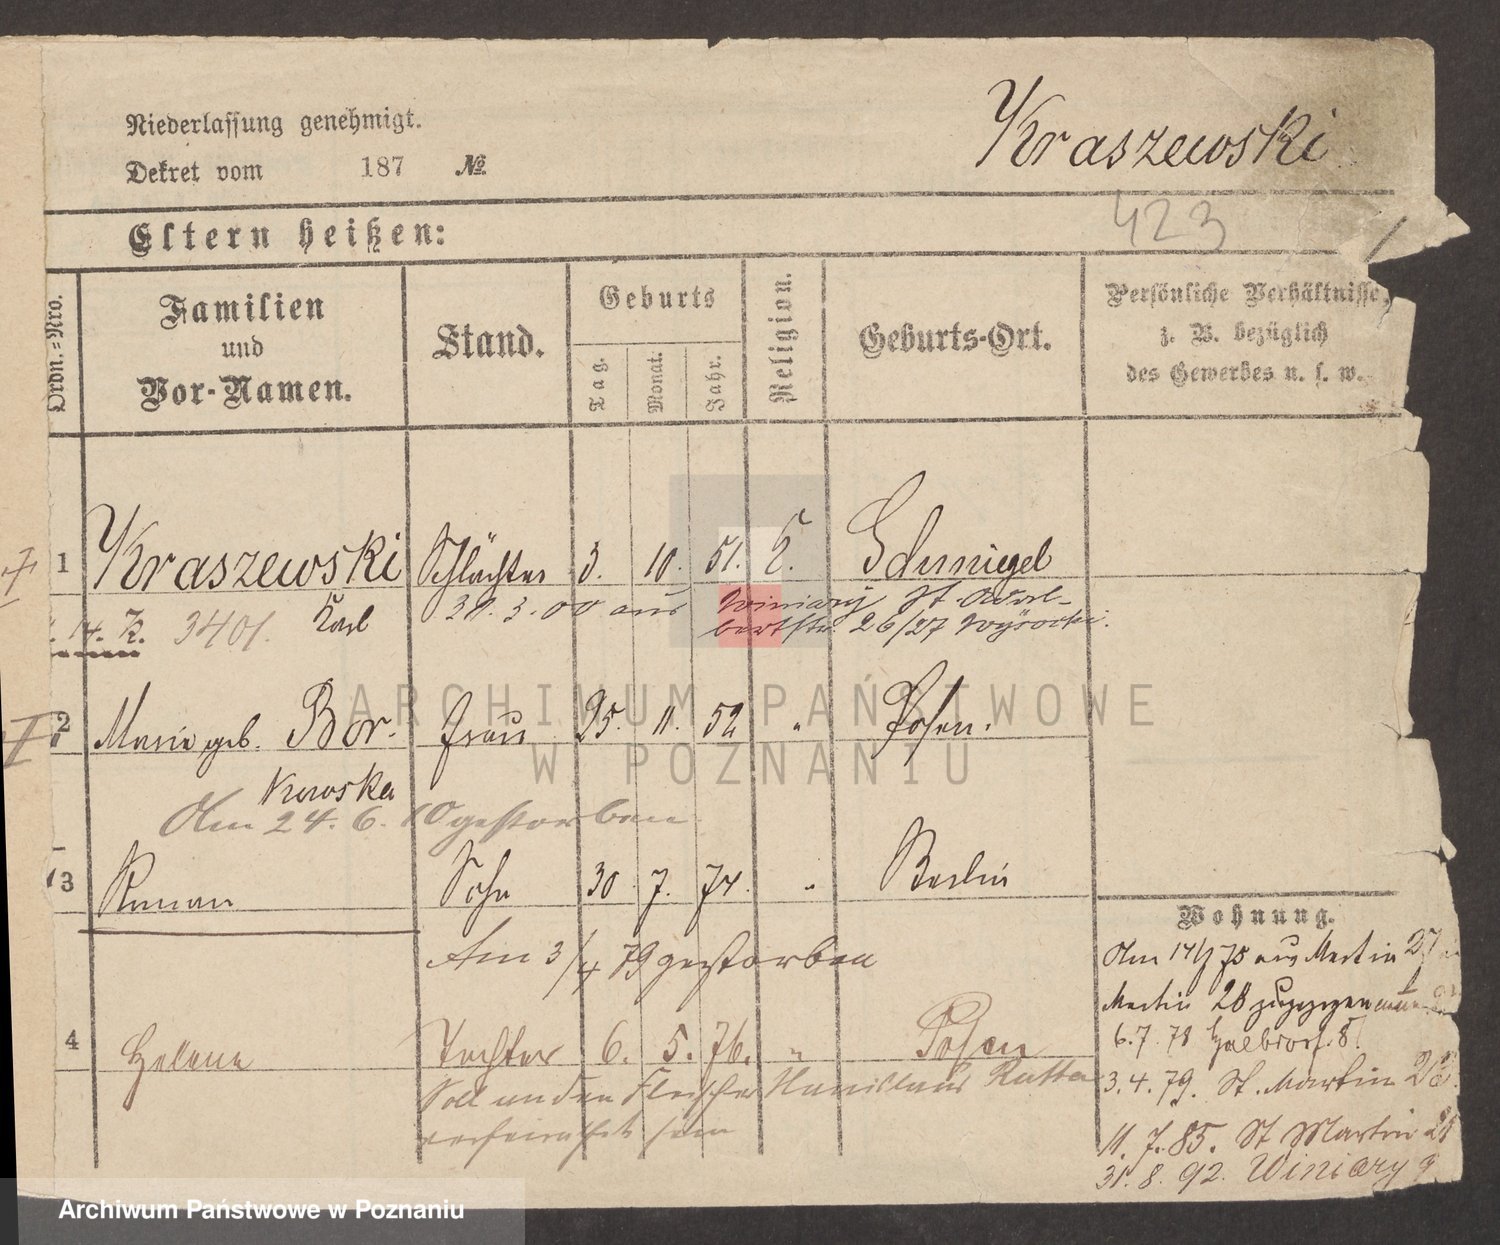 Niederlassung genehmigt.
Dekret vom 187 №
Kraszewski
423
Eltern heißen:
Ordn.=Nro.
Familien
und
Vor-Namen.
Stand.
Geburts
Tag.
Monat.
Jahr.
Religion.
Geburts-Ort.
Persönliche Verhältnisse,
z. B. bezüglich
des Gewerbes u. s. w.
1 Kraszewski Schlächter 3. 10. 51. k. Schmiegel
3401. Karl 31. 3. 00 aus Winiary St. Adal-
bertstr. 26/27 Wysocki.
2 Marie geb. Bor- Frau 25. 11. 52 " Posen.
kowska
Am 24. 6. 10 gestorben
3 Roman Sohn 30 7. 74. " Berlin
Am 3/4 79 gestorben
4 Helene Tochter 6. 5. 76. " Posen
Soll an den Fleischer Stanislaus Ratta
verheirathet sein
Wohnung.
Am 14/4 75 aus Martin 27
Martin 28 zugezogen
6. 7. 78 Halbdorf. 8.
3. 4. 79. St. Martin 28.
11. 7. 85. St Martin 28
31. 8. 92. Winiary 9
ARCHIWUM PAŃSTWOWE
W POZNANIU
Archiwum Państwowe w Poznaniu